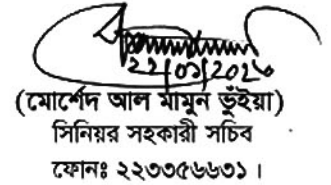 22/01/2026
(মোর্শেদ আল মামুন ভূঁইয়া)
সিনিয়র সহকারী সচিব
ফোনঃ ২২৩৩৫৬৬৩১।